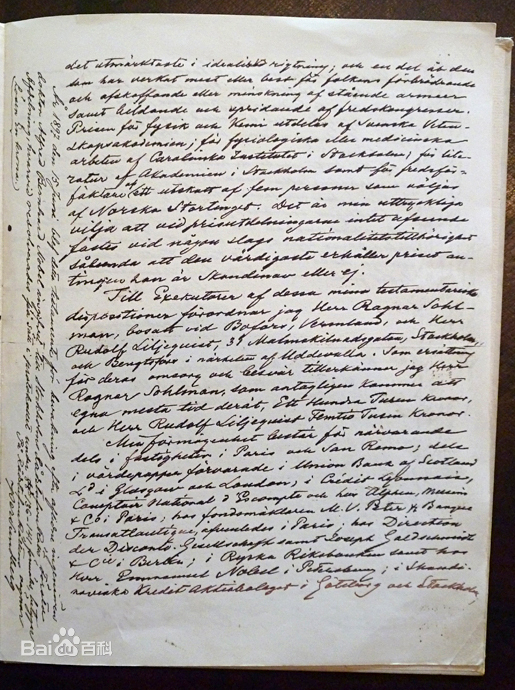 det utmärktaste i idealisk rigtning; och en del åt den
som har verkat mest eller best för folkens förbrödrande
och afskaffande eller minskning af stående armeer
samt bildande och spridande af fredskongresser.
Prisen för fysik och kemi utdelas af Svenska Veten-
skapsakademien; för fysiologiska eller medicinska
arbeten af Carolinska Institutet i Stockholm; för lite-
ratur af Akademien i Stockholm samt för fredsför-
fäktare af ett utskott af fem personer som väljas
af Norska Stortinget. Det är min uttryckliga
vilja att vid prisutdelningarne intet afseende
fästes vid någon slags nationalitetstillhörighet
sålunda att den värdigaste erhåller priset an-
tingen han är Skandinav eller ej.
Till Exekutorer af dessa mina testamentariska
dispositioner förordnar jag Herr Ragnar Sohl-
man, bosatt vid Bofors, Vermland, och Herr
Rudolf Liljequist, 31 Malmskilnadsgatan, Stockholm,
och Bengtsfors i närheten af Uddevalla. Som ersättning
för deras omsorg och besvär tillerkänner jag Herr
Ragnar Sohlman, som antagligen kommer att
egna mesta tid deråt, Ett Hundra Tusen Kronor,
och Herr Rudolf Liljequist Femtio Tusen Kronor.
Min förmögenhet består för närvarande
dels i fastigheter i Paris och San Remo; dels
i värdepapper förvarade i Union Bank of Scotland
Ld i Glasgow och London, i Crédit Lyonnais,
Comptoir National d'Escompte och hos Alphen, Messin
& Co i Paris; hos fondmäklaren M. V. Peter & Banque
Transatlantique, äfvenledes i Paris; hos Direction
der Disconto Gesellschaft samt Joseph Goldschmidt
& Cie i Berlin; i Ryska Riksbanken samt hos
Herr Emmanuel Nobel i Petersburg; i Skandi-
naviska Kredit Aktiebolaget i Göteborg och Stockholm
År 1897 den 5
Bai百科